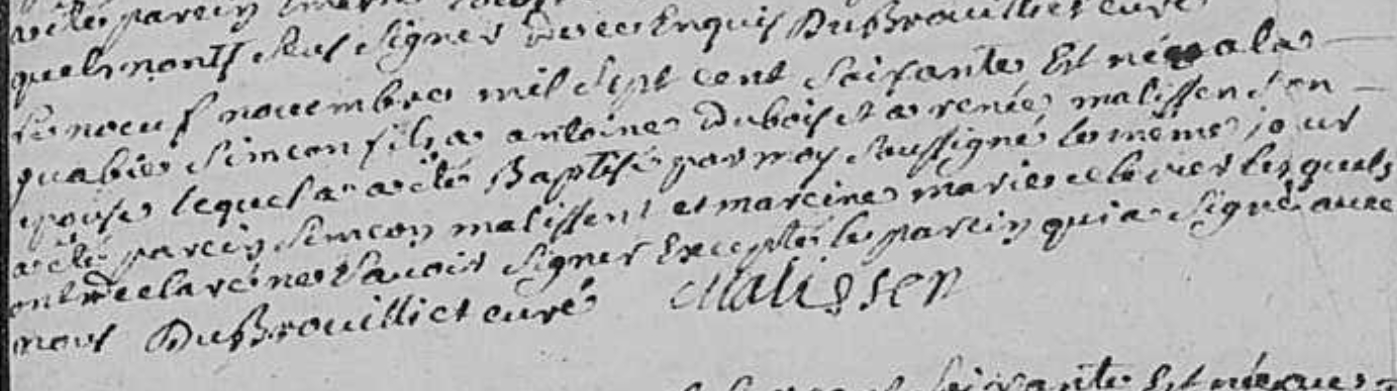 a été parein
quels n'ont sceus signer de ce Enquis Dubrouilliet curé
Le noeuf novembre mil sept cent soixante Est né a la
quabie simeon fils a antoine Dubois et a renée malissen son
epouse lequel a été Baptisé par moy soussigné le même jour
a été parein simeon malissent et mareine marie lesquels
ont declaré ne savoir signer Excepté le parein qui a signé avec
nous DuBrouilliet curé Malissen
soixante Est né